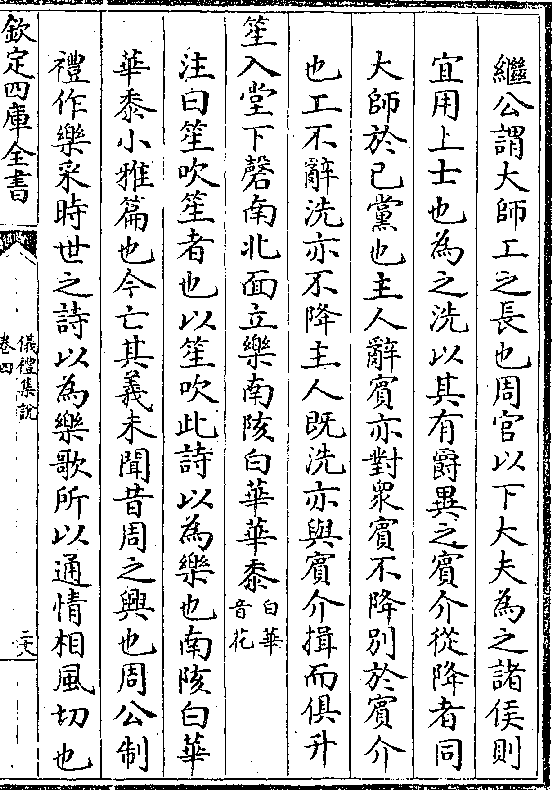 繼公謂大師工之長也周官以下大夫為之諸侯則
宜用上士也為之洗以其有爵異之賓介從降者同
大師於己黨也主人辭賓亦對衆賓不降別於賓介
也工不辭洗亦不降主人既洗亦與賓介揖而俱升
笙入堂下磬南北面立樂南陔白華華黍白華音花
注曰笙吹笙者也以笙吹此詩以為樂也南陔白華
華黍小雅篇也今亡其義未聞昔周之興也周公制
禮作樂采時世之詩以為樂歌所以通情相風切也
欽定四庫全書
儀禮集說
卷四